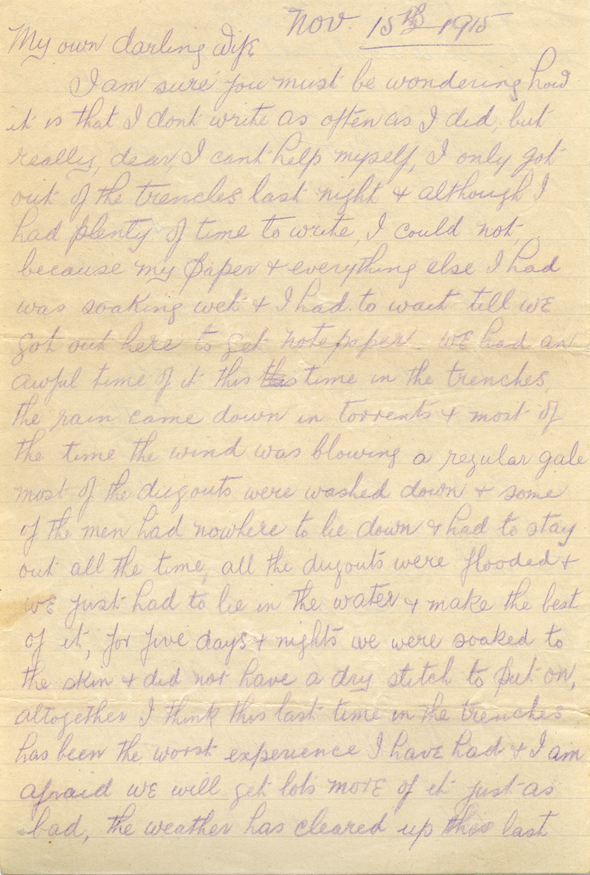 Nov. 15th 1915
My own darling Wife
I am sure you must be wondering how
it is that I dont write as often as I did, but
really, dear, I cant help myself, I only got
out of the trenches last night & although I
had plenty of time to write, I could not,
because my paper & everything else I had
was soaking wet & I had to wait till we
got out here to get notepaper. We had an
awful time of it this this time in the trenches,
the rain came down in torrents & most of
the time the wind was blowing a regular gale
most of the dugouts were washed down & some
of the men had nowhere to lie down & had to stay
out all the time, all the dugouts were flooded &
we just had to lie in the water & make the best
of it, for five days & nights we were soaked to
the skin & did not have a dry stitch to put on,
altogether I think this last time in the trenches
has been the worst experience I have had & I am
afraid we will get lots more of it just as
bad, the weather has cleared up this last